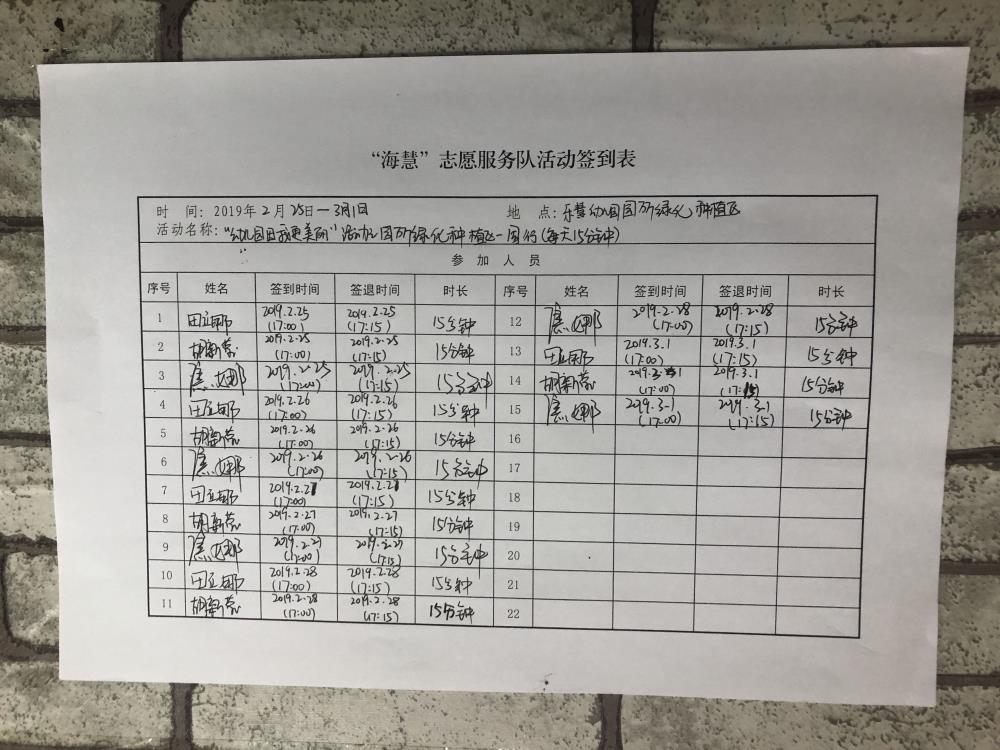 “海慧”志愿服务队活动签到表
时 间：2019年2月25日—3月1日 地 点：乐慧幼儿园园所绿化种植区
活动名称：“幼儿园因我更美丽”活动儿园所绿化种植区一周行(每天15分钟)
参加人员
序号 姓名 签到时间 签退时间 时长 序号 姓名 签到时间 签退时间 时长
1 田亚娜 2019.2.25 (17:00) 2019.2.25 (17:15) 15分钟 12 焦娜 2019.2.28 (17:00) 2019.2.28 (17:15) 15分钟
2 胡新蕊 2019.2.25 (17:00) 2019.2.25 (17:15) 15分钟 13 田亚娜 2019.3.1 (17:00) 2019.3.1 (17:15) 15分钟
3 焦娜 2019.2.25 (17:00) 2019.2.25 (17:15) 15分钟 14 胡新蕊 2019.3.1 (17:00) 2019.3.1 (17:15) 15分钟
4 田亚娜 2019.2.26 (17:00) 2019.2.26 (17:15) 15分钟 15 焦娜 2019.3.1 (17:00) 2019.3.1 (17:15) 15分钟
5 胡新蕊 2019.2.26 (17:00) 2019.2.26 (17:15) 15分钟 16
6 焦娜 2019.2.26 (17:00) 2019.2.26 (17:15) 15分钟 17
7 田亚娜 2019.2.27 (17:00) 2019.2.27 (17:15) 15分钟 18
8 胡新蕊 2019.2.27 (17:00) 2019.2.27 (17:15) 15分钟 19
9 焦娜 2019.2.27 (17:00) 2019.2.27 (17:15) 15分钟 20
10 田亚娜 2019.2.28 (17:00) 2019.2.28 (17:15) 15分钟 21
11 胡新蕊 2019.2.28 (17:00) 2019.2.28 (17:15) 15分钟 22